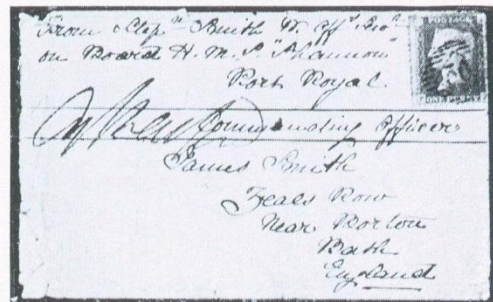 From Step<sup>n</sup> Smith W. Off<sup>s</sup>
on Board H. M. S. "Shannon"
Port Royal
Commanding Officer
James Smith
Zeals Row
Near Borton
Bath
England
POSTAGE
ONE PENNY